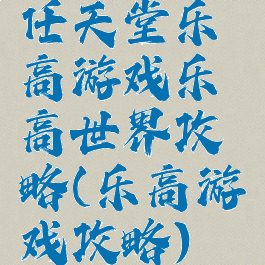 任天堂乐
高游戏乐
高世界攻
略(乐高游
戏攻略)